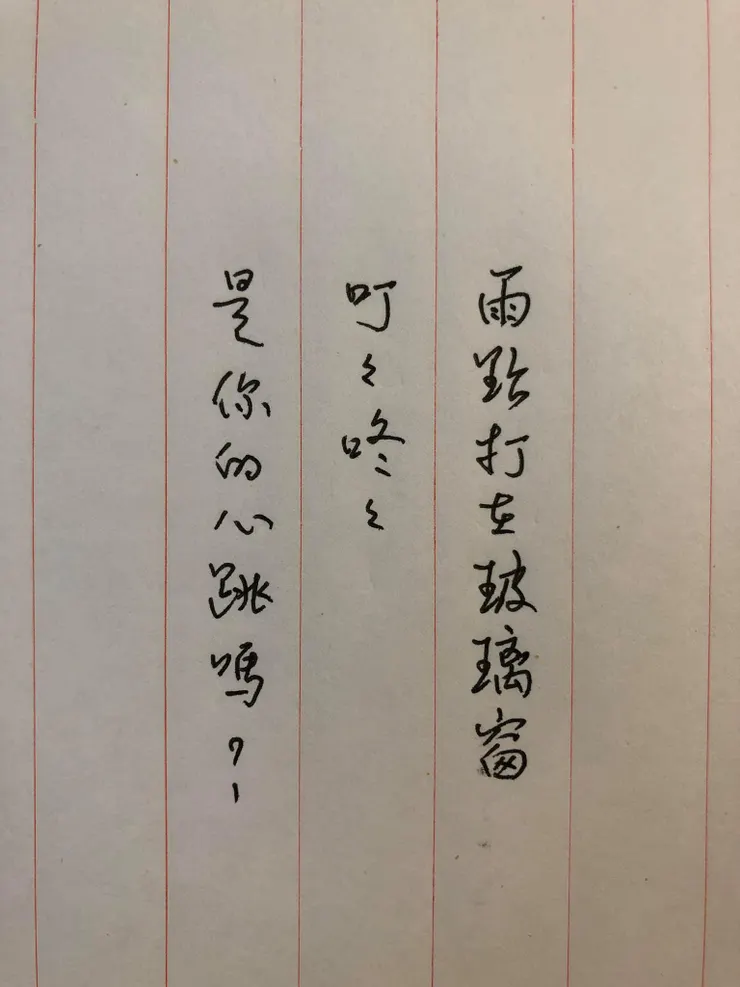 雨點打在玻璃窗
叮々咚々
是你的心跳嗎？